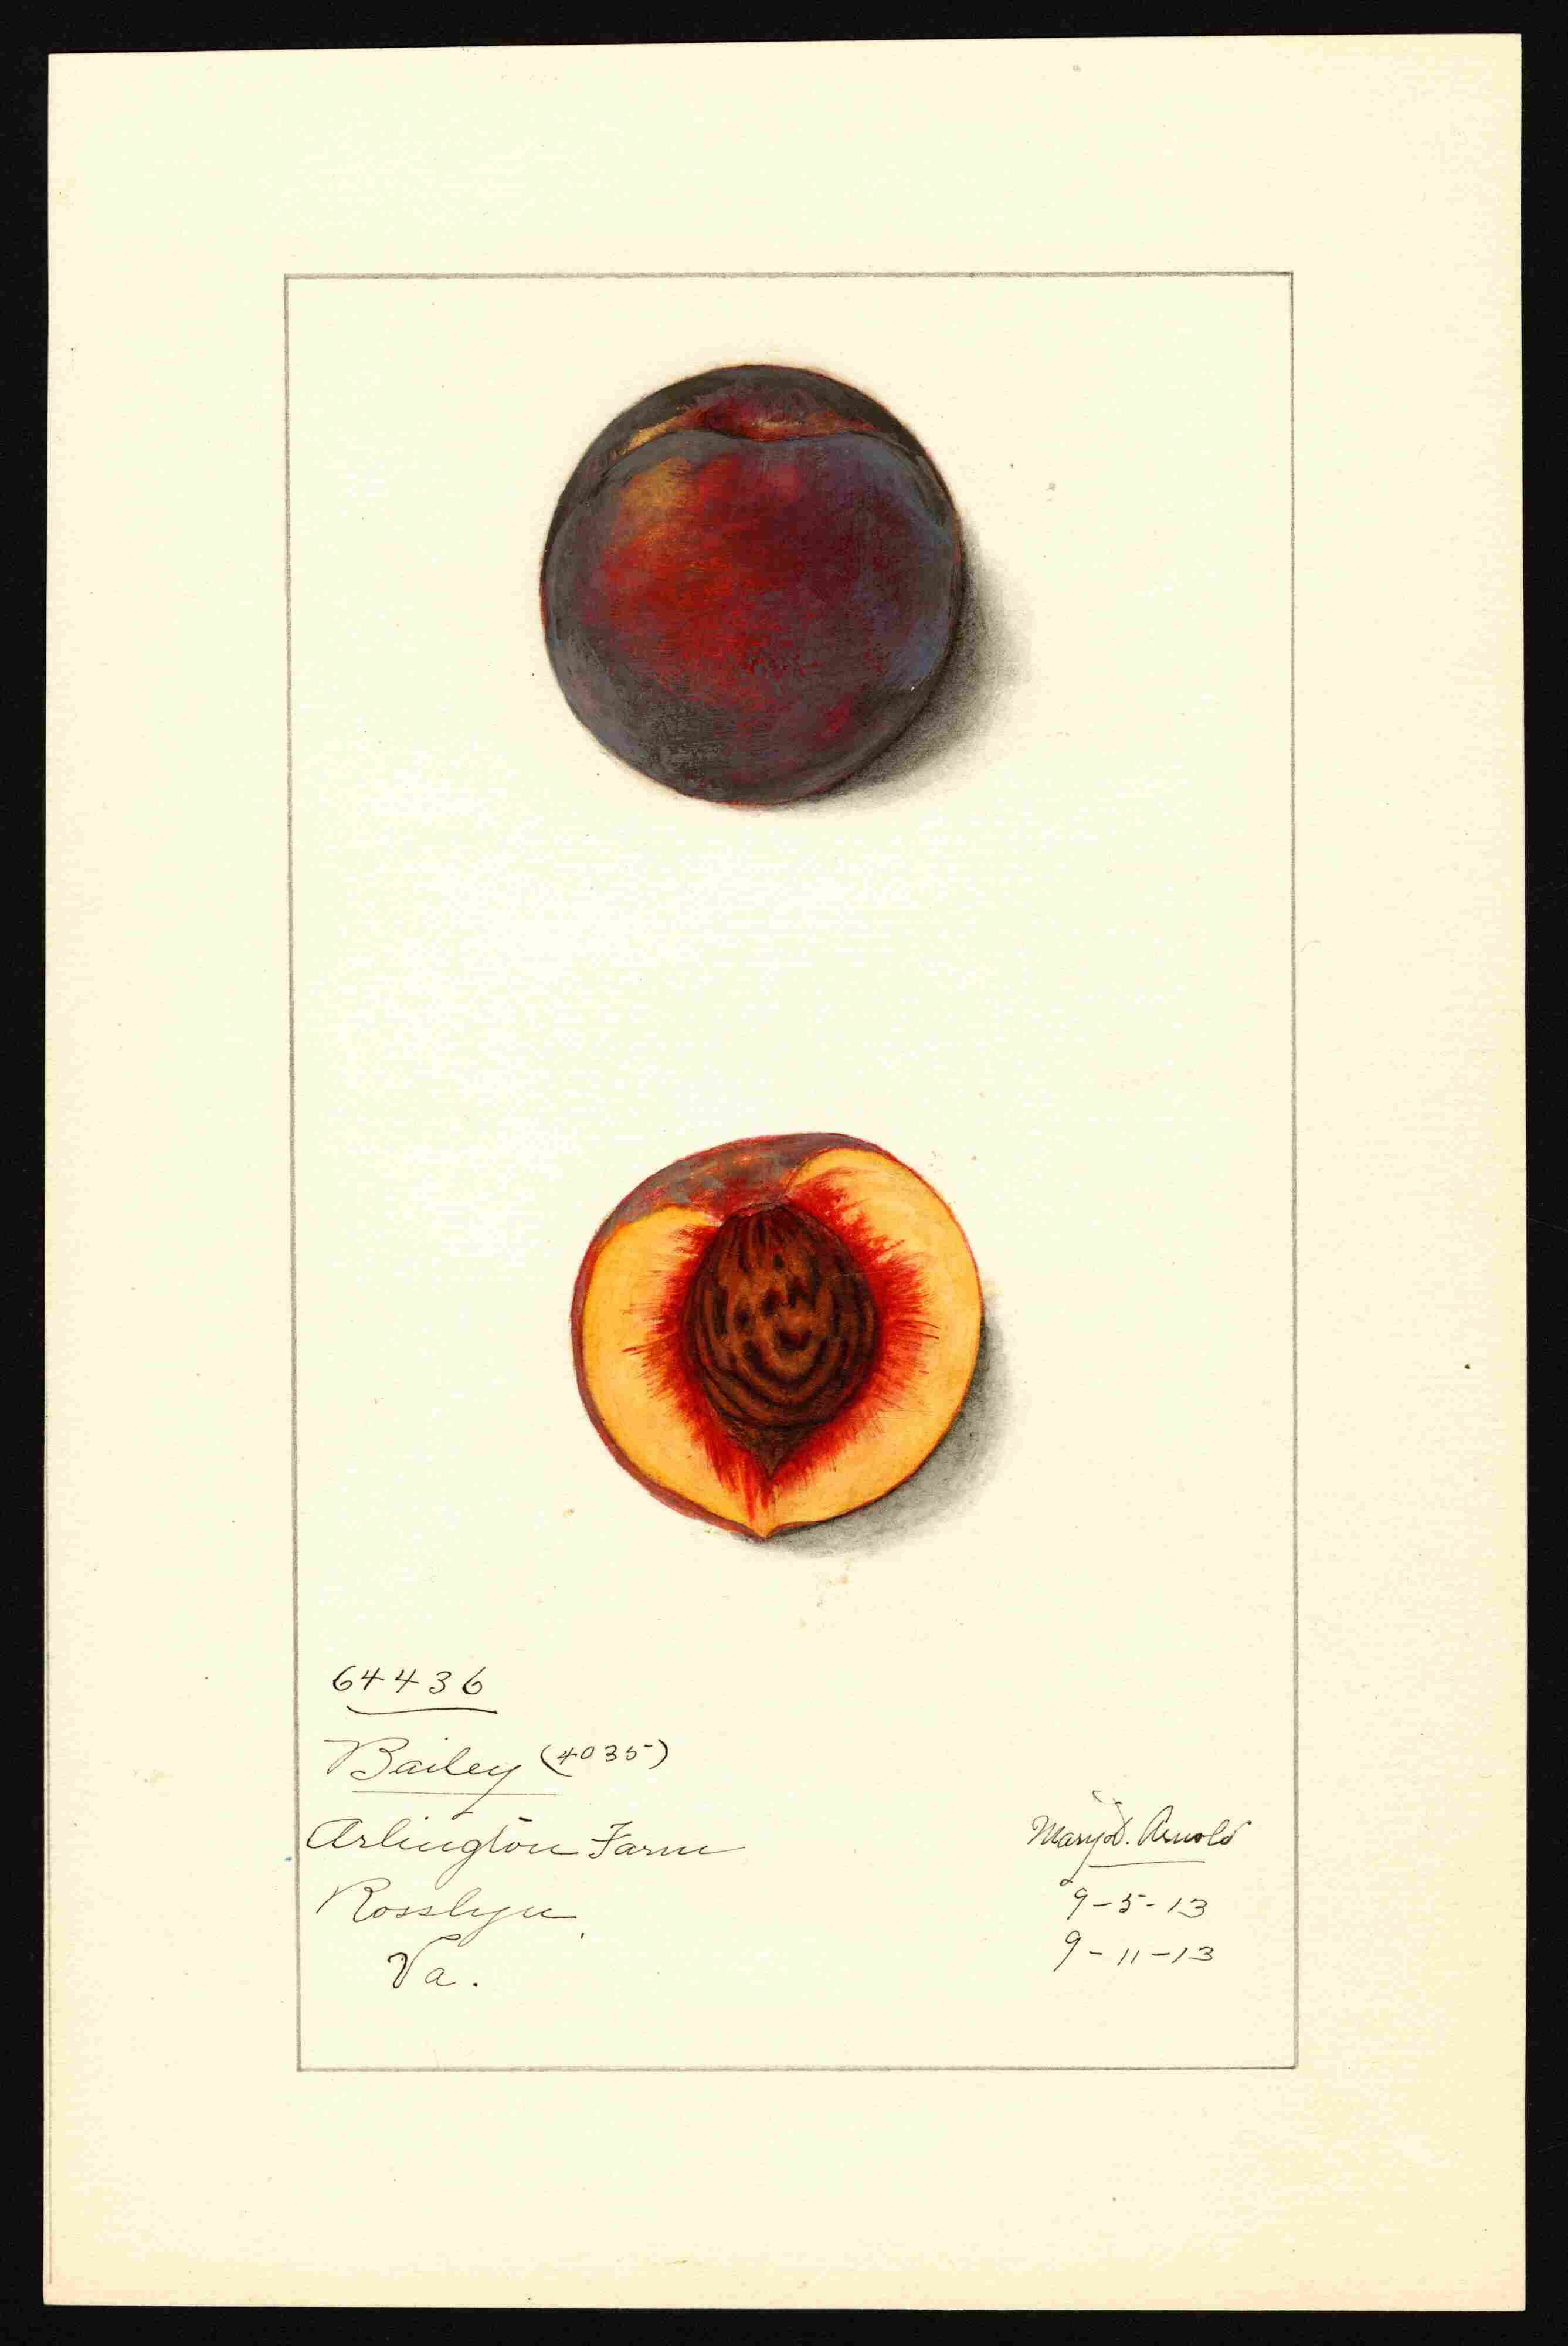 64436
Bailey (4035)
Arlington Farm
Rosslyn,
Va.
Mary D. Arnold
9-5-13
9-11-13